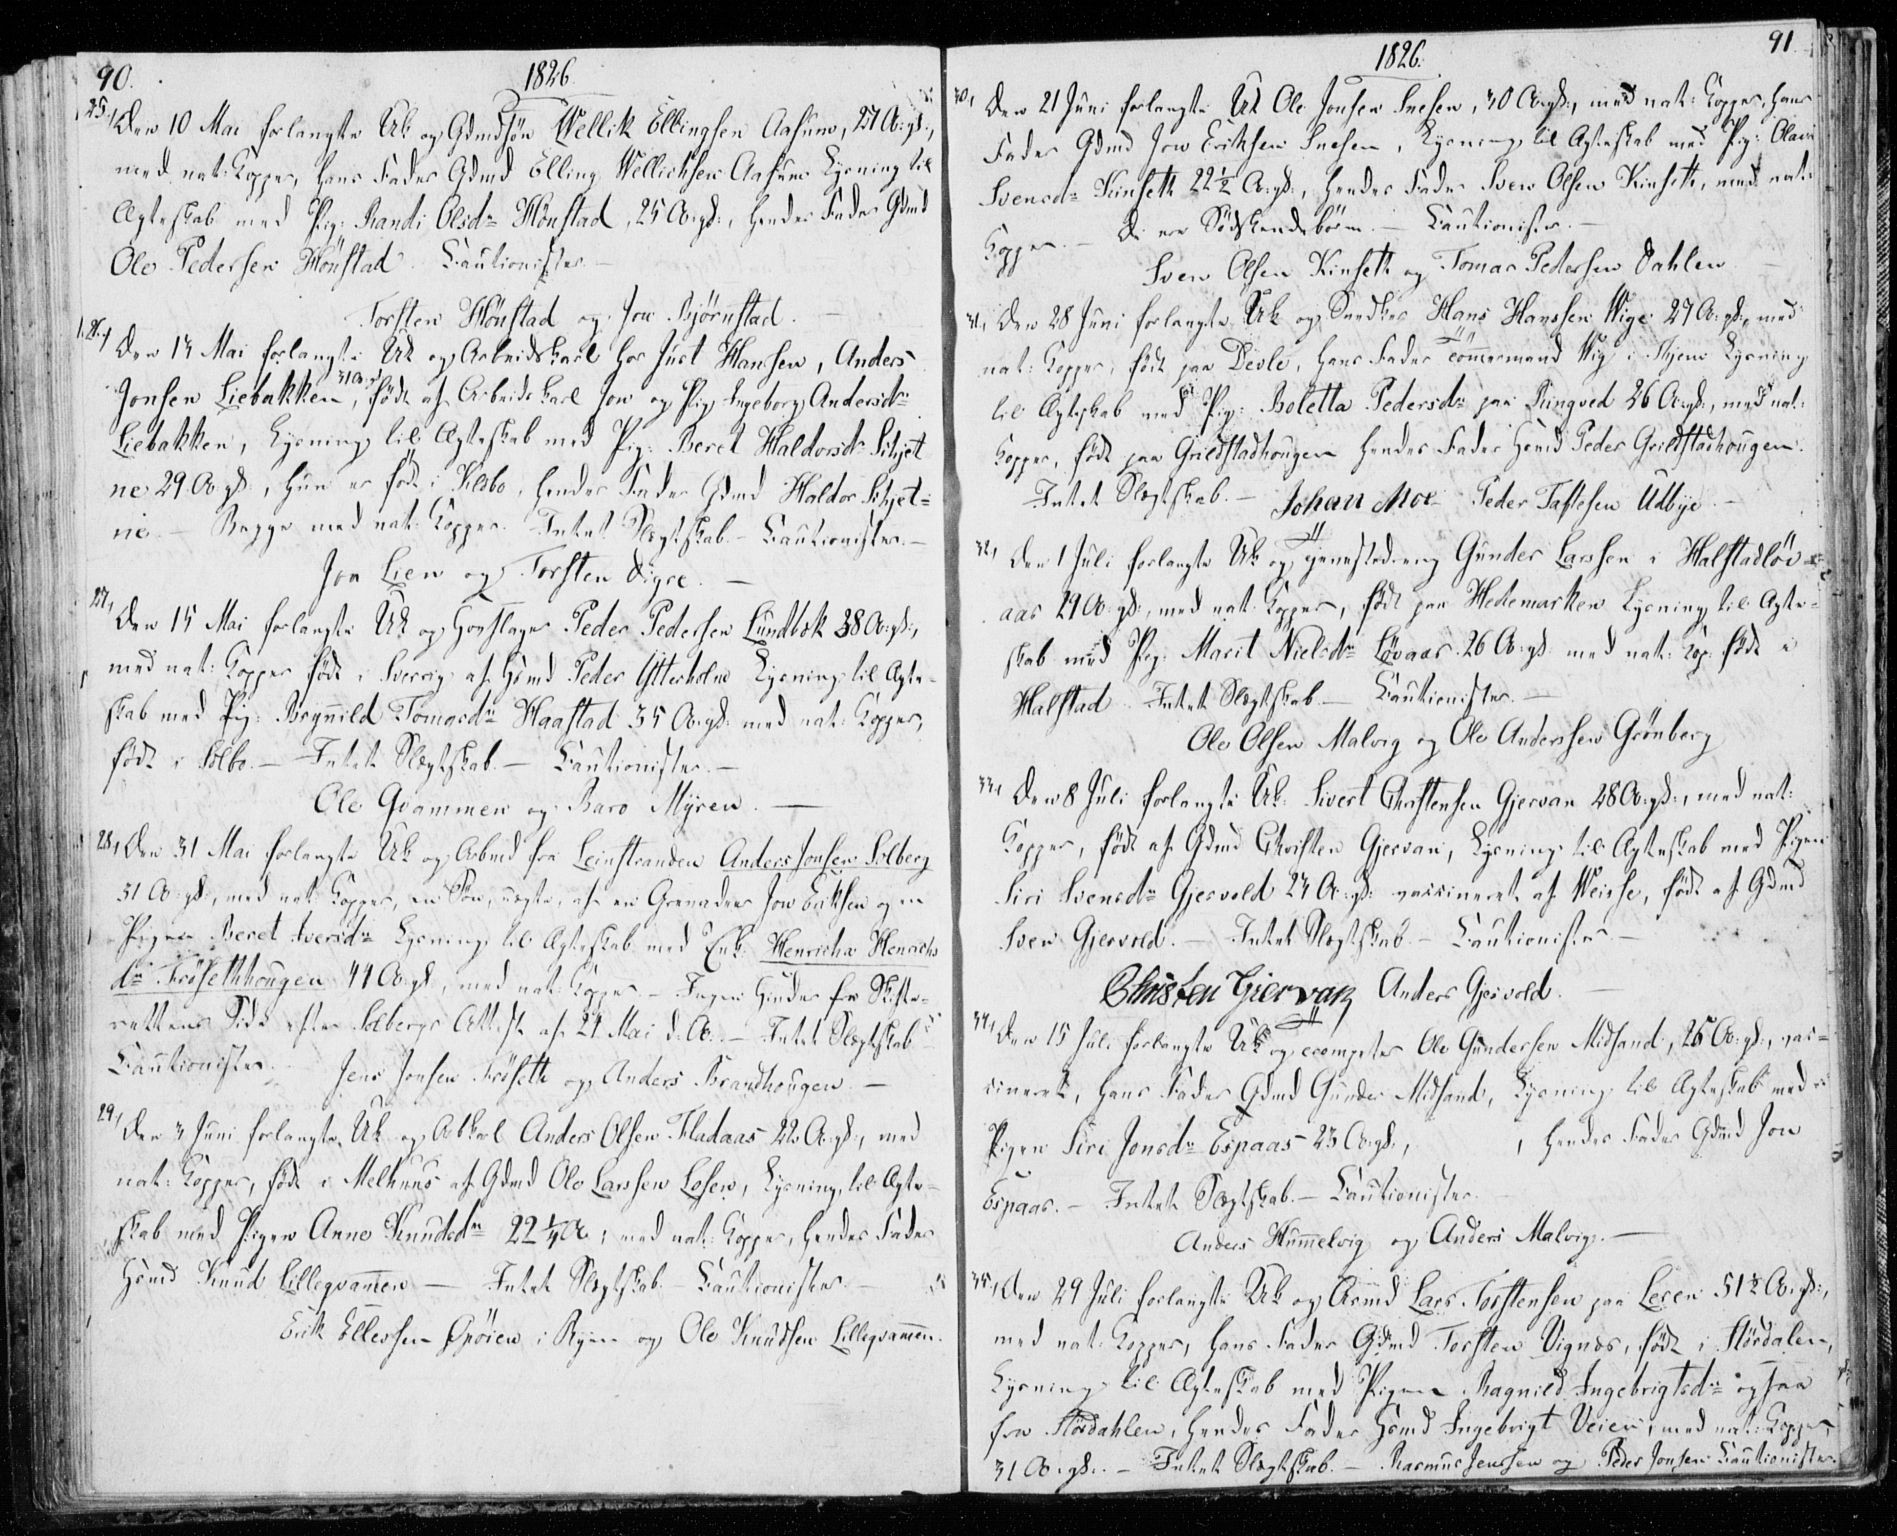 90.
1826.
25, Den 10 Mai forlangte Uk og Gdmdsön Wellik Ellingsen Aasum, 27 A: gl:,
med nat: Kopper, hans Fader Gdmd Elling Wellichsen Aasum Lysning til
Ægteskab med Pig: Randi Olsd: Hönstad, 25 A: gl:, hendes Fader Gdmd
Ole Pedersen Hönstad. Cautionister. —
Torsten Hönstad og Jon Björnstad. —
26, Den 13 Mai forlangte Uk og Arbeidskarl hos Just Hansen, Anders
Jonsen Liebakken, 31 A: gl: födt af Arbeidskarl Jon og Pig Ingeborg Andersd:
Liebakken, Lysning til Ægteskab med Pig: Beret Haldorsd: Schjet
ne 29 A: gl:, hun er födt i Klæbo, hendes Fader Gdmd Haldor Schjet=
ne. — Begge med nat: Kopper. Intet Slegtskab. — Cautionister. —
Jon Lien og Torsten Digre. —
27, Den 15 Mai forlangte Uk og Peder Pedersen Lundbok 38 A: gl:,
med nat: Kopper födt i Sverig af Hsmd Peder Ytterholm Lysning til Ægte=
skab med Pig: Brynnild Tomasd: Haastad 35 A: gl: med nat: Kopper,
födt i Selbo. — Intet Slegtskab. — Cautionister. —
Ole Qvammen og Baro Myren. —
28, Den 31 Mai forlangte Uk og Arbmd fra Leinstranden Anders Jonsen Solberg
51 A: gl:, med nat: Kopper, en Sön, uægte, af en Grenadeer Jon Eriksen og en
Pigen Beret Iversd: Lysning til Ægteskab med Enk: Henricha Henrichs
d: Frösethhougen 44 A: gl:, med nat: Kopper. — Ingen Hinder fra Skifte=
rettens Side efter Solbergs Attest af 24 Mai d: A. — Intet Slegtskab
Cautionister. Jens Jonsen Fröseth og Anders Brandhougen. —
29, Den 3 Juni forlangte Uk og Arbkarl Anders Olsen Fladaas 22 A: gl:, med
nat: Kopper, födt i Melhuus af Gdmd Ole Larsen Losen, Lysning til Ægte=
skab med Pigen Anne Knudsd: 22 1/4 A:, med nat: Kopper, hendes Fader
Hsmd Knud Lilleqvammen — Intet Slegtskab. — Cautionister. —
Erik Ellevsen Gröien i Byen og Ole Knudsen Lilleqvammen.
1826.
91
30, Den 21 Juni forlangte Uk Ole Jonsen Snesen, 30 A: gl:, med nat: Kopper, hans
Fader Gdmd Jon Eriksen Snesen, Lysning til Ægteskab med Pig: Olava
Svensd: Kinseth 22 1/2 A: gl:, hendes Fader Sven Olsen Kinseth, med nat:
Kopper. — De ere Södskendebörn. — Cautionister. —
Sven Olsen Kinseth og Tomas Pedersen Dahlen
31, Den 28 Juni forlangte Uk og Snedker Hans Hanssen Wige 27 A: gl:, med
nat: Kopper, födt paa Devle, hans Fader Tömmermand Wig i Skjem Lysning
til Ægteskab med Pig: Boletta Pedersd: paa Ringved 26 A: gl:, med nat:
Kopper, födt paa Grildstadhougen hendes Fader Hsmd Peder Grildstadhougen.
Intet Slegtskab. — Johan Moe Peder Taftesen Udbye. —
32, Den 1 Juli forlangte Uk og Tjenestedreng Gunder Larssen i Halstadlöv=
aas 29 A: gl:, med nat: Kopper, födt paa Hedemarken Lysning til Ægte=
skab med Pig: Marit Nielsd: Lövaas 26 A: gl: med nat: Kop: födt i
Halstad. Intet Slegtskab. — Cautionister. —
Ole Olsen Malvig og Ole Anderssen Grönberg
33, Den 8 Juli forlangte Uk: Sivert Christensen Gjervan 28 A: gl:, med nat:
Kopper, födt af Gdmd Christen Gjervan, Lysning til Ægteskab med Pigen
Siri Svensd: Gjervold 23 A: gl: vaccineret af Weisse, födt af Gdmd
Sven Gjervold. — Intet Slegtskab. — Cautionister. —
Christen Gjervan Anders Gjervold. —
34, Den 15 Juli forlangte Uk og Trompeter Ole Gundersen Midsand, 25 A: gl:, vac=
cineret, hans Fader Gdmd Gunder Midsand, Lysning til Ægteskab med
Pigen Siri Jonsd: Espaas 23 A: gl:, , hendes Fader Gdmd Jon
Espaas. — Intet Slegtskab. — Cautionister.
Anders Hummelvig og Anders Malvig. —
35, Den 29 Juli forlangte Uk og Lars Torstensen paa Leren 51 1/2 A: gl:,
med nat: Kopper, hans Fader Gdmd Torsten Vignes, födt i Stördalen,
Lysning til Ægteskab med Pigen Ragnild Ingebrigtsd: ogsaa
fra Stördahlen, hendes Fader Hsmd Ingebrigt Veien, med nat: Kopper
31 A: gl:. — Intet Slegtskab. — Rasmus Jenssen og Peder Jonsen Cautionister.